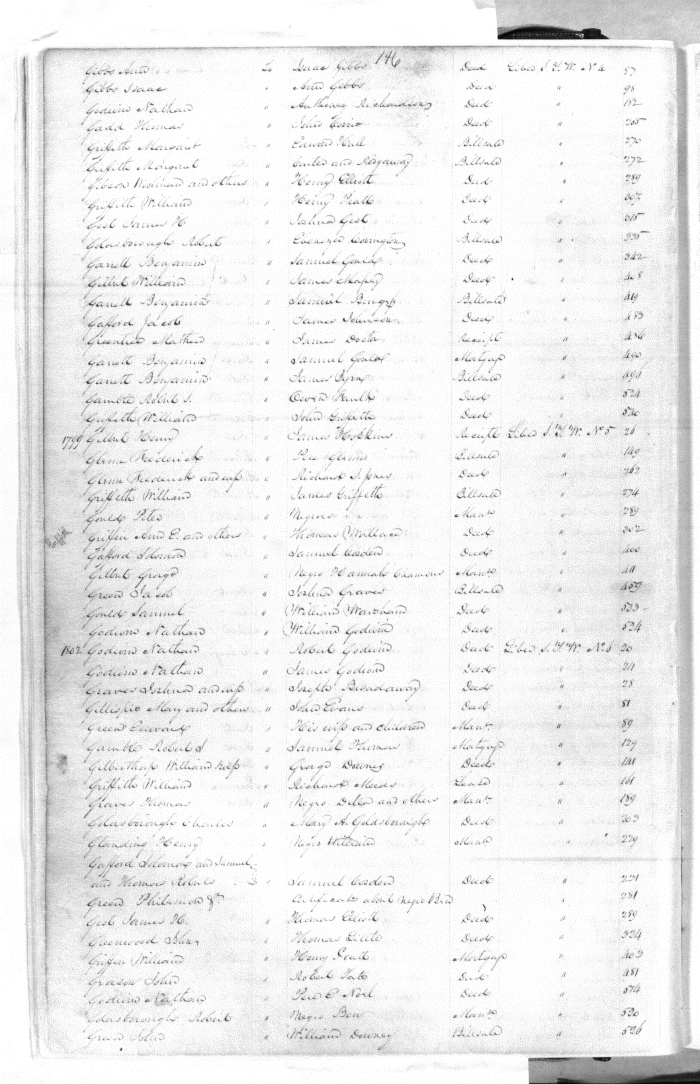 146
Gibbs Ann To Isaac Gibbs Deed Liber S.T.W. No 4 97
Gibbs Isaac " Ann Gibbs Deed " 98
Godwin Nathan " Anthony Richardson Deed " 182
Gadd Thomas " John Deed " 205
Griffith Margaret " Edward Hall Billsale " 270
Griffith Margaret " and Billsale " 272
Gibson Woolman and others " Henry Elliott Deed " 289
Griffith William " Henry Pratt Deed " 307
Gest James H. " Joshua Gest Deed " 315
Goldsborough Robert " Ebenezer Covington Billsale " 335
Garrett Benjamin " Samuel Deed " 342
Gilbert William " James Deed " 408
Garrett Benjamin " Samuel Billsale " 419
Gafford Jacob " James Johnson Deed " 483
Greentree Mathew " James Receipt " 486
Garrett Benjamin " Samuel Mortgage " 490
Garrett Benjamin " James Billsale " 491
Gamble Robert S. " Deed " 524
Griffith William " John Griffith Deed " 526
1799 Gilbert Henry " James Hopkins Receipt Liber S.T.W. No 5 26
Frederick " Billsale " 149
Frederick and wife " Richard I. Jones Deed " 262
Griffith William " James Griffith Billsale " 274
Gould Peter " Negroes Manu " 289
Griffin
Griffin Ann E. and others " Thomas Wallace Deed " 302
Gafford Solomon " Samuel Deed " 400
Gilbert George " Negro Hannah Manu " 411
Green Jacob " Joshua Graves Billsale " 459
Gould Samuel " William Deed " 533
Godwin Nathan " William Godwin Deed " 534
1802 Godwin Nathan " Robert Godwin Deed Liber S.T.W. No 6 20
Godwin Nathan " James Godwin Deed " 24
Graves Joshua and wife " Joseph Broadaway Deed " 28
Gillespie Mary and others " John Evans Deed " 81
Green Edward " His wife and children Manu " 89
Gamble Robert S. " Samuel Thomas Mortgage " 129
William & wife " George Downey Deed " 141
Griffith William " Richard Meeds Lease " 161
Graves Thomas " Negro Delia and others Manu " 189
Goldsborough Charles " Mary A. Goldsborough Deed " 203
Glanding Henry " Negro William Manu " 229
Gafford Solomon and Samuel
and Thomas Roberts " Samuel Deed " 231
Green Philemon " Certificate about Negro Ben " 281
Gest James H. " Thomas Elliott Deed " 289
Greenwood John " Thomas Deed " 324
Griffin William " Henry Pratt Mortgage " 403
Grason John " Robert Deed " 481
Godwin Nathan " Deed " 514
Goldsborough Robert " Negro Ben Manu " 520
Green John " William Downey Billsale " 526